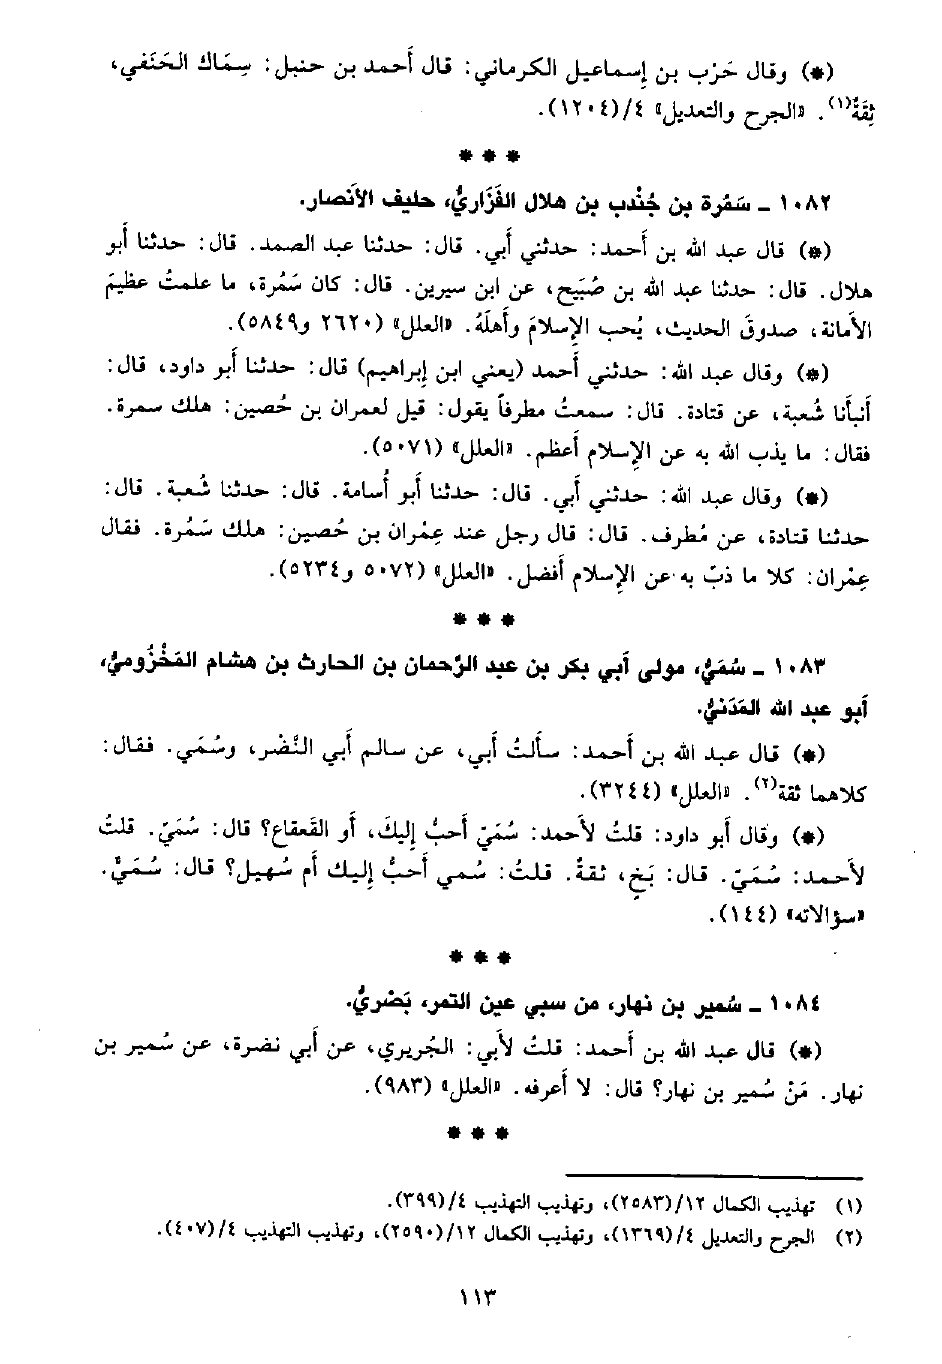 (*) وقال حَرْب بن إسماعيل الكرماني: قال أَحمد بن حنبل: سِمَاك الحَنَفي،
ثِقَةٌ(١). «الجرح والتعديل» ٤/(١٢٠٤).
* * *
١٠٨٢ ـ سَمُرة بن جُنْدب بن هلال الفَزَاريُّ، حليف الأَنصار.
(*) قال عبد الله بن أَحمد: حدثني أَبي. قال: حدثنا عبد الصمد. قال: حدثنا أَبو
هلال. قال: حدثنا عبد الله بن صُبَيح، عن ابن سيرين. قال: كان سَمُرة، ما علمتُ عظيمَ
الأَمانة، صدوقَ الحديث، يُحب الإِسلامَ وأَهلَهُ. «العلل» (٢٦٢٠ و٥٨٤٩).
(*) وقال عبد الله: حدثني أَحمد (يعني ابن إِبراهيم) قال: حدثنا أَبو داود، قال:
أَنبأَنا شُعبة، عن قتادة. قال: سمعتُ مطرفاً يقول: قيل لعمران بن حُصين: هلك سمرة.
فقال: ما يذب الله به عن الإِسلام أَعظم. «العلل» (٥٠٧١).
(*) وقال عبد الله: حدثني أَبي. قال: حدثنا أَبو أُسامة. قال: حدثنا شُعبة. قال:
حدثنا قتادة، عن مُطرف. قال: قال رجل عند عِمْران بن حُصين: هلك سَمُرة. فقال
عِمْران: كلا ما ذبّ به عن الإِسلام أَفضل. «العلل» (٥٠٧٢ و٥٢٣٤).
* * *
١٠٨٣ ـ سُمَيُّ، مولى أَبي بكر بن عبد الرَّحمان بن الحارث بن هشام المَخْزُوميُّ،
أَبو عبد الله المَدَنيُّ.
(*) قال عبد الله بن أَحمد: سأَلتُ أَبي، عن سالم أَبي النَّضْر، وسُمَي. فقال:
كلاهما ثقة(٢). «العلل» (٣٢٤٤).
(*) وقال أَبو داود: قلتُ لأَحمد: سُمَيّ أَحبُّ إِليكَ، أَو القَعقاع؟ قال: سُمَيّ. قلتُ
لأَحمد: سُمَيّ. قال: بَخٍ، ثقةٌ. قلتُ: سُمي أَحبُّ إِليك أَم سُهيل؟ قال: سُمَيٌّ.
«سؤالاته» (١٤٤).
* * *
١٠٨٤ ـ سُمير بن نهار، من سبي عين التمر، بَصْريُّ.
(*) قال عبد الله بن أَحمد: قلتُ لأَبي: الجُريري، عن أَبي نضرة، عن سُمير بن
نهار. مَنْ سُمير بن نهار؟ قال: لا أَعرفه. «العلل» (٩٨٣).
* * *
(١) تهذيب الكمال ١٢/(٢٥٨٣)، وتهذيب التهذيب ٤/(٣٩٩).
(٢) الجرح والتعديل ٤/(١٣٦٩)، وتهذيب الكمال ١٢/(٢٥٩٠)، وتهذيب التهذيب ٤/(٤٠٧).
١١٣